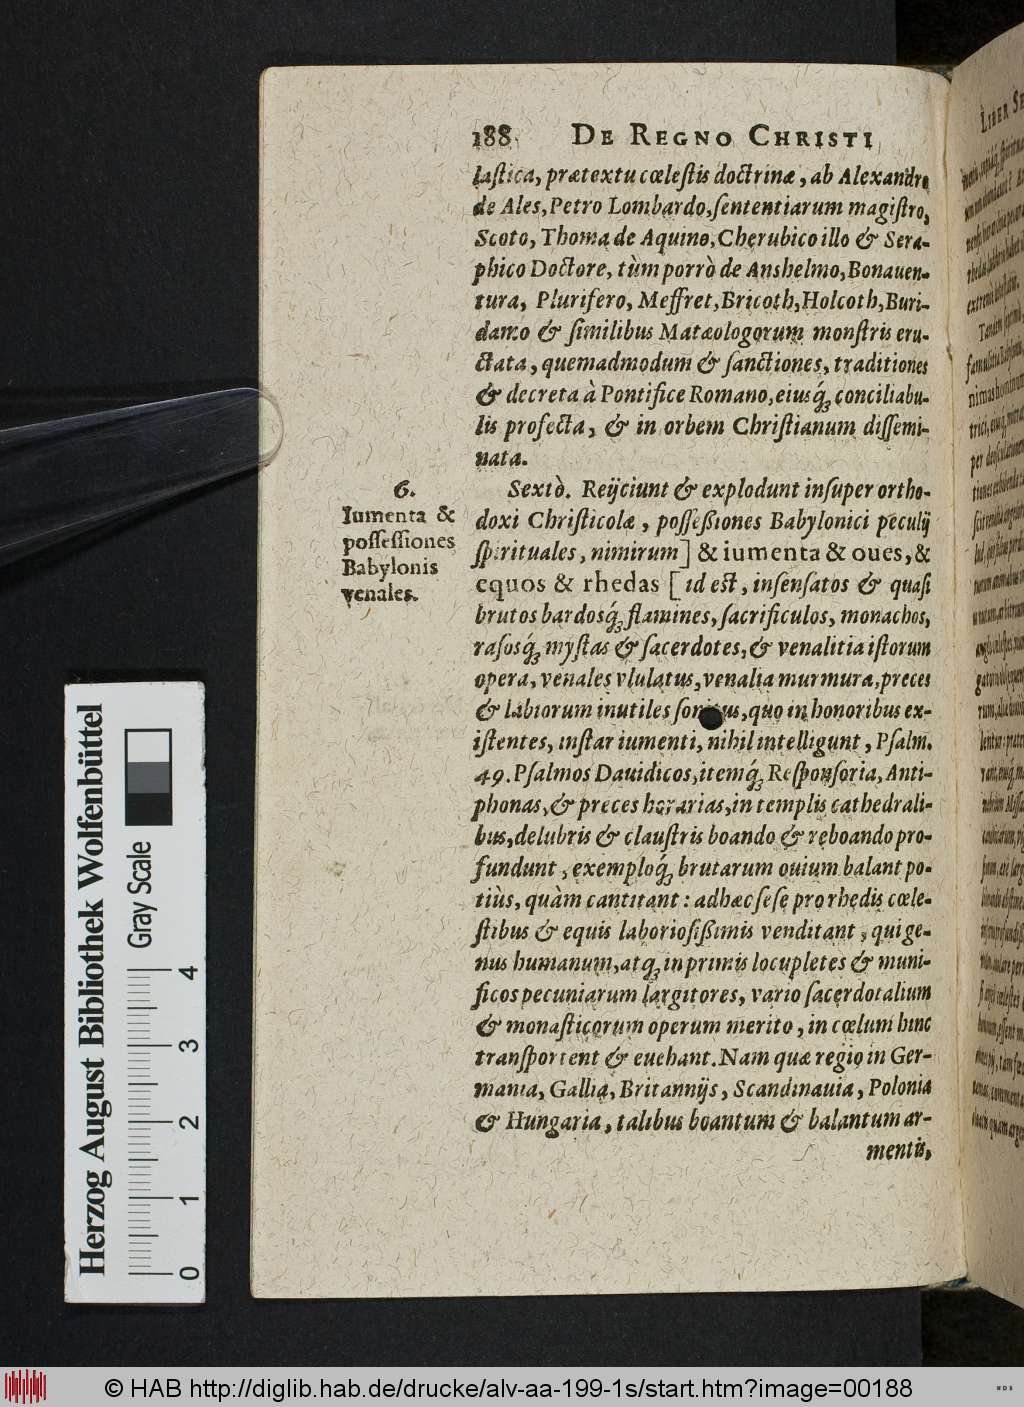 188 DE REGNO CHRISTI
lastica, prætextu cœlestis doctrinæ, ab Alexandro
de Ales, Petro Lombardo, sententiarum magistro,
Scoto, Thoma de Aquino, Cherubico illo & Sera-
phico Doctore, tùm porrò de Anshelmo, Bonauen-
tura, Plurifero, Meffret, Bricoth, Holcoth, Buri-
damo & similibus Matæologorum monstris eru-
ctata, quemadmodum & sanctiones, traditiones
& decreta à Pontifice Romano, eiusq́; conciliabu-
lis profecta, & in orbem Christianum dissemi-
nata.
6.
Iumenta &
possessiones
Babylonis
venales.
Sextò. Reijciunt & explodunt insuper ortho-
doxi Christicolæ, possessiones Babylonici peculij
spirituales, nimirum] & iumenta & oues, &
equos & rhedas [id est, insensatos & quasi
brutos bardosq́; flamines, sacrificulos, monachos,
rasosq́; mystas & sacerdotes, & venalitia istorum
opera, venales vlulatus, venalia murmura, preces
& labiorum inutiles quo in honoribus ex-
istentes, instar iumenti, nihil intelligunt, Psalm.
49. Psalmos Dauidicos, itemq́; Responsoria, Anti-
phonas, & preces horarias, in templis cathedrali-
bus, delubris & claustris boando & reboando pro-
fundunt, exemploq́; brutarum ouium balant po-
tiùs, quàm cantitant: adhæc sese pro rhedis cœle-
stibus & equis laboriosissimis venditant, qui ge-
nus humanum, atq; inprimis locupletes & muni-
ficos pecuniarum largitores, vario sacerdotalium
& monasticorum operum merito, in cœlum hinc
transportent & euehant. Nam quæ regio in Ger-
mania, Gallia, Britannijs, Scandinauia, Polonia
& Hungaria, talibus boantum & balantum ar-
mentis,
LIBER
Herzog August Bibliothek Wolfenbüttel
Gray Scale
0 1 2 3 4
© HAB http://diglib.hab.de/drucke/alv-aa-199-1s/start.htm?image=00188